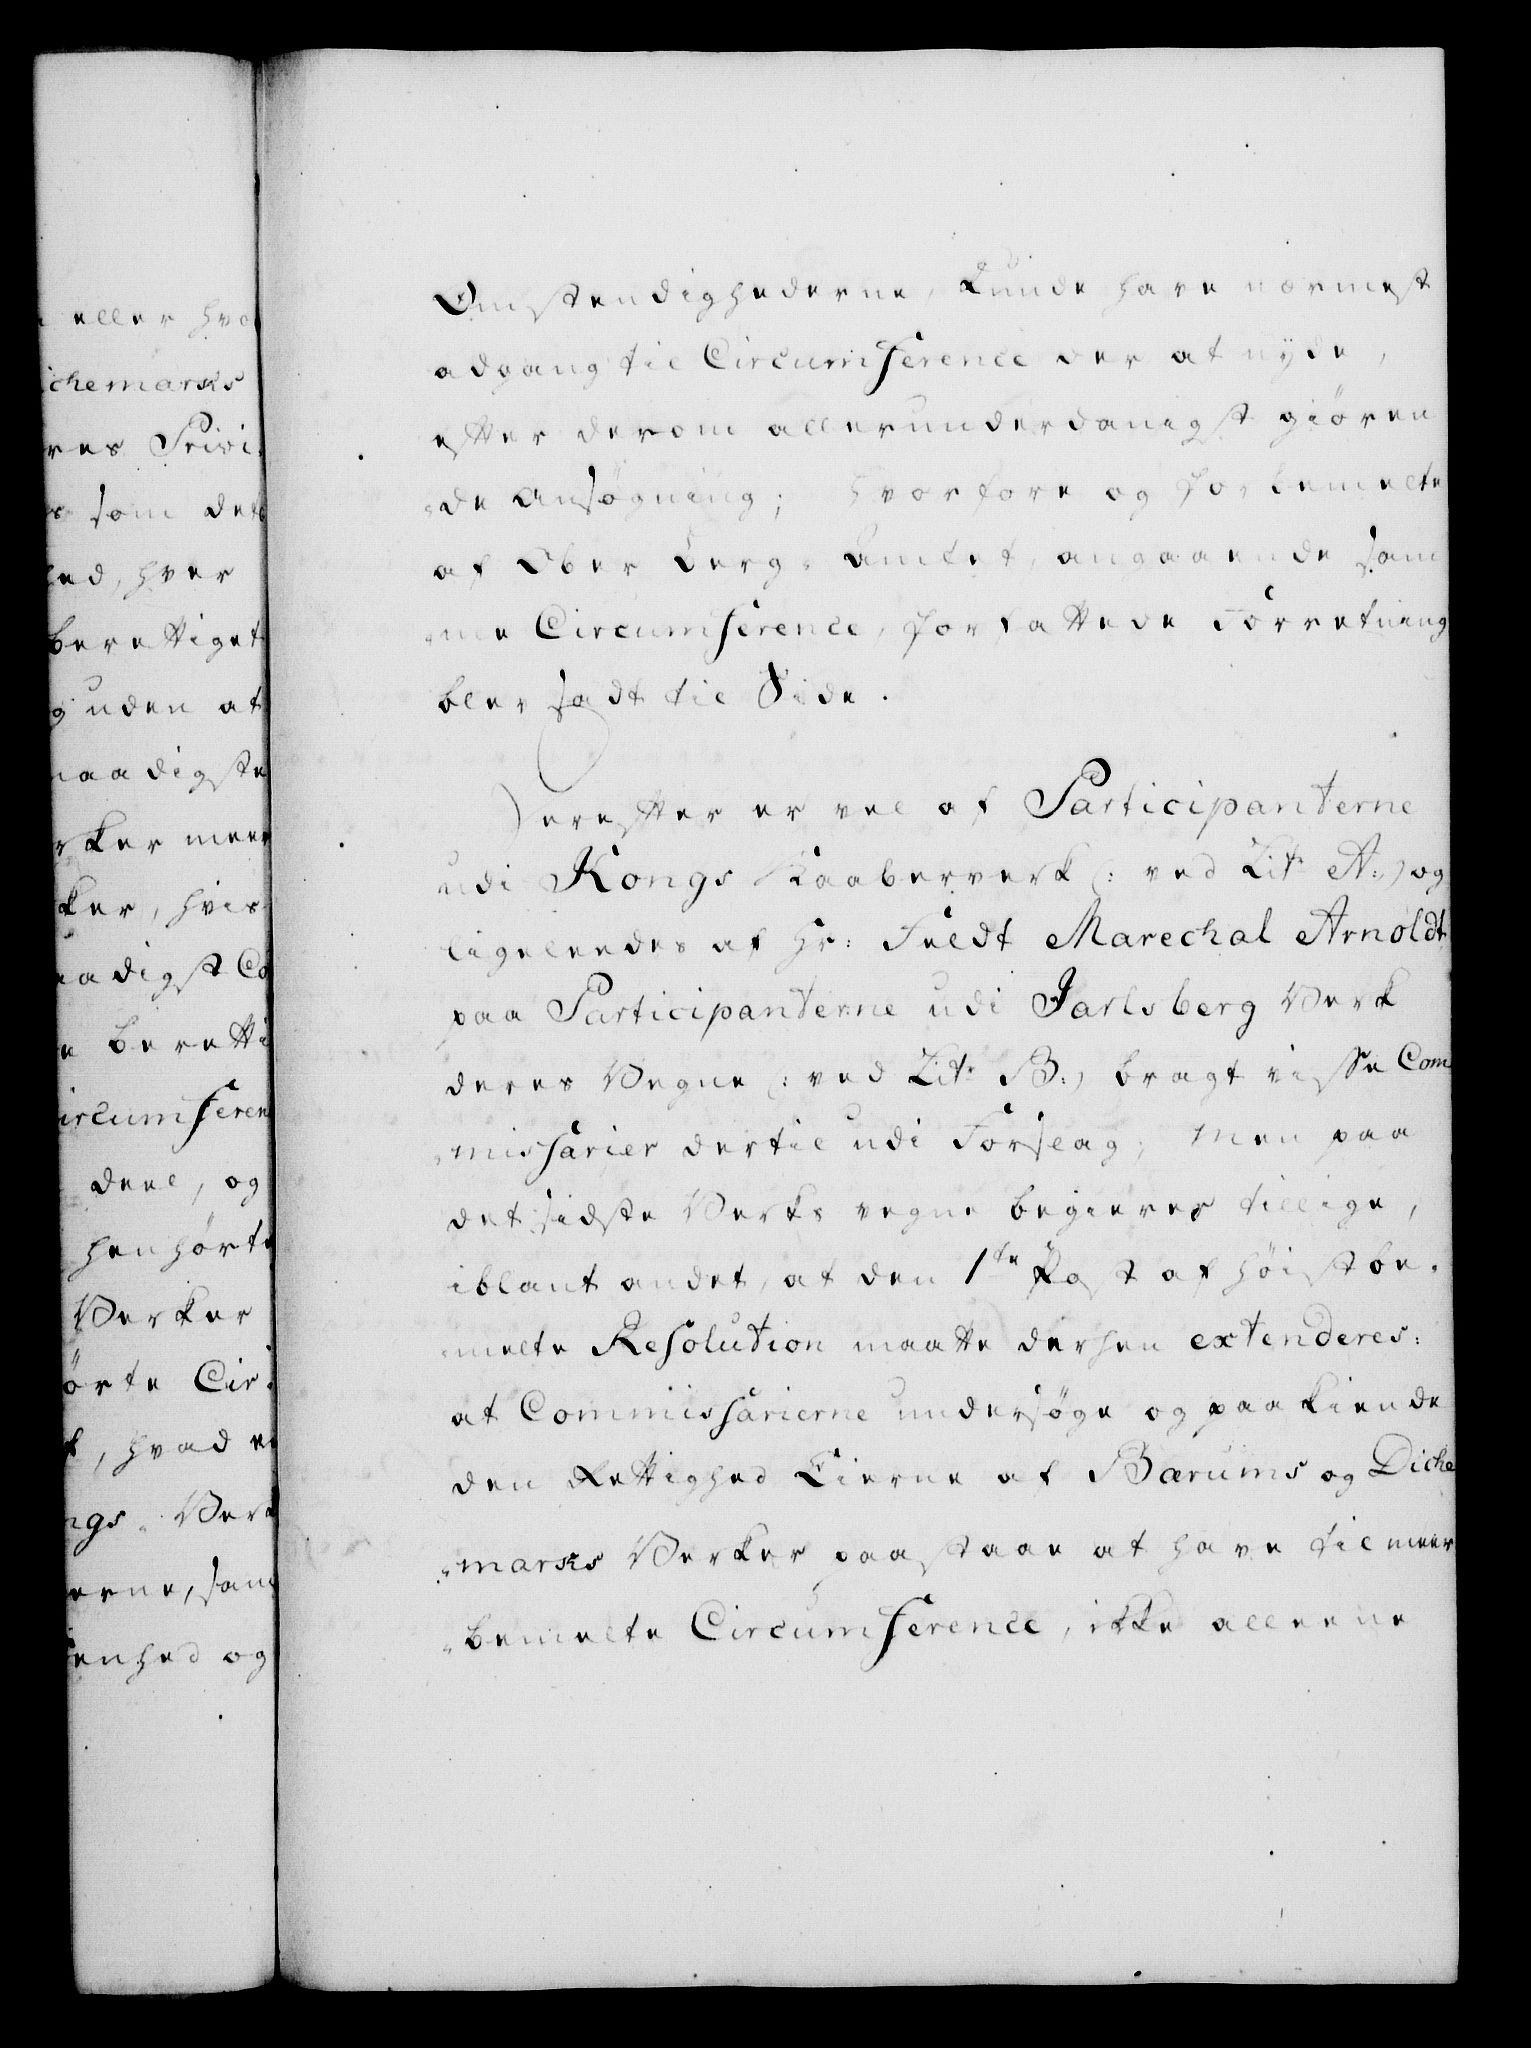 eller hva
ichemarks
res Privi-
som dets
hed, hver
berettiget
uden at
naadigste
rker meer
ker, hvis
aadigst Co
e beretti
ircumferen
deel, og
henhørte
Verker
ørte Cir-
, hvad
ngs- Verk
erne, sam
enhed og
Omstendighederne, kunde have nærmest
adgang til Circumference der at nyde,
efter derom allerunderdanigst giören
-de ansøgning; hvorfore og forbemelte
af Ober Berg-Amtet, angaaende sam
-me Circumference, forfattede Forretning
blev sadt til Side.
Derefter er vel af Participanterne
udi Kongs Kaaberverk (: ved Lit. A:) og
ligeleedes af Hr: Feldt Marechal Arnoldt
paa Participanterne udi Jarlsberg Verk
deres Vegne (: ved Lit. B:) bragt visse Com
-missarier dertil udi Forslag; Men paa
det sidste Verks vegne begieres tillige,
iblant andet, at den 1te Post af höistbe-
-melte Resolution maatte derhen extenderes:
at Commissarierne undersøge og paakiende
den Rettighed Eierne af Bærums og Diche
-marks Verker paastaae at have til meer
-bemelte Circumference, ikke alleene